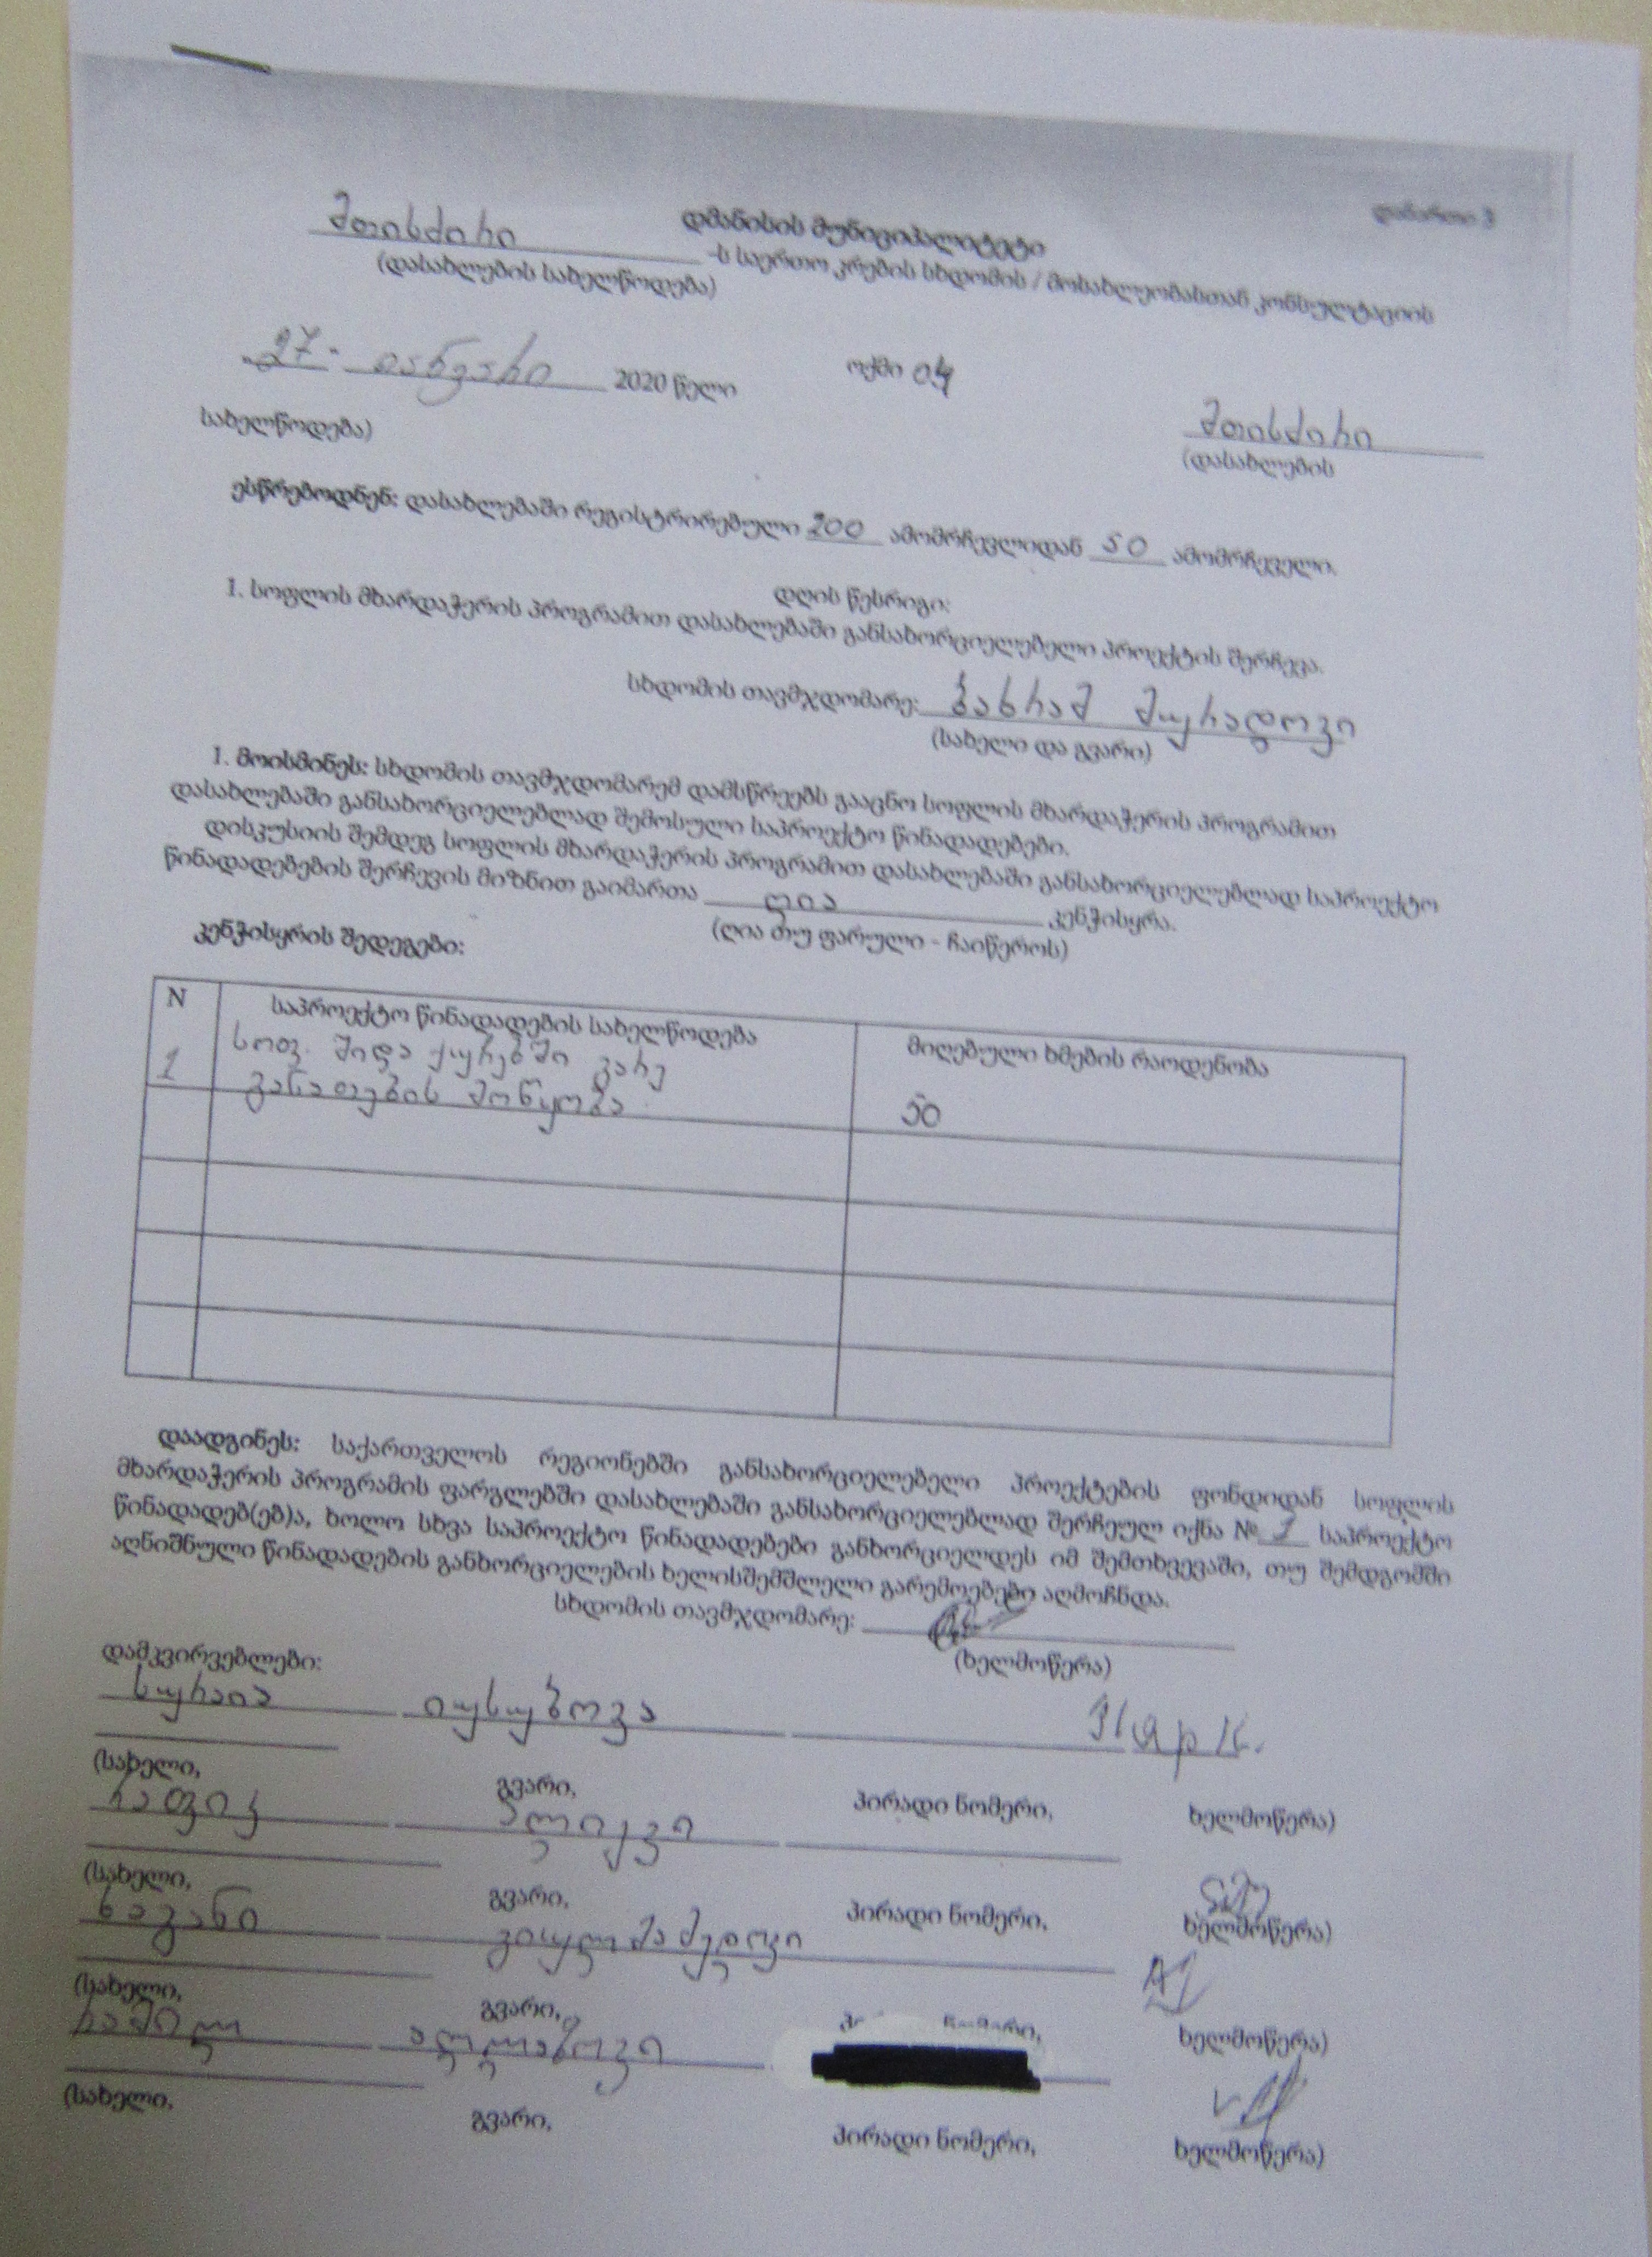 დანართი 3
დმანისის მუნიციპალიტეტი
მთისძირი -ს საერთო კრების სხდომის / მოსახლეობასთან კონსულტაციის
(დასახლების სახელწოდება)
ოქმი 04
27 იანვარი 2020 წელი
მთისძირი
(დასახლების
სახელწოდება)
ესწრებოდნენ: დასახლებაში რეგისტრირებული 200 ამომრჩევლიდან 50 ამომრჩეველი.
დღის წესრიგი:
1. სოფლის მხარდაჭერის პროგრამით დასახლებაში განსახორციელებელი პროექტის შერჩევა.
სხდომის თავმჯდომარე: ბახრამ მურადოვი
(სახელი და გვარი)
1. მოისმინეს: სხდომის თავმჯდომარემ დამსწრეებს გააცნო სოფლის მხარდაჭერის პროგრამით
დასახლებაში განსახორციელებლად შემოსული საპროექტო წინადადებები.
დისკუსიის შემდეგ სოფლის მხარდაჭერის პროგრამით დასახლებაში განსახორციელებლად საპროექტო
წინადადებების შერჩევის მიზნით გაიმართა ღია კენჭისყრა.
(ღია თუ ფარული - ჩაიწეროს)
კენჭისყრის შედეგები:
N საპროექტო წინადადების სახელწოდება მიღებული ხმების რაოდენობა
1 სოფ. შიდა ქუჩებში გარე
განათების მოწყობა 50
დაადგინეს: საქართველოს რეგიონებში განსახორციელებელი პროექტების ფონდიდან სოფლის
მხარდაჭერის პროგრამის ფარგლებში დასახლებაში განსახორციელებლად შერჩეულ იქნა № 1 საპროექტო
წინადადებ(ებ)ა, ხოლო სხვა საპროექტო წინადადებები განხორციელდეს იმ შემთხვევაში, თუ შემდგომში
აღნიშნული წინადადების განხორციელების ხელისშემშლელი გარემოებები აღმოჩნდა.
სხდომის თავმჯდომარე:
(ხელმოწერა)
დამკვირვებლები:
სურაია იუსუბოვა
(სახელი, გვარი, პირადი ნომერი, ხელმოწერა)
რაფიკ
(სახელი, გვარი, პირადი ნომერი, ხელმოწერა)
ხაგანი
(სახელი, გვარი, ნომერი, ხელმოწერა)
რამილ
(სახელი, გვარი, პირადი ნომერი, ხელმოწერა)